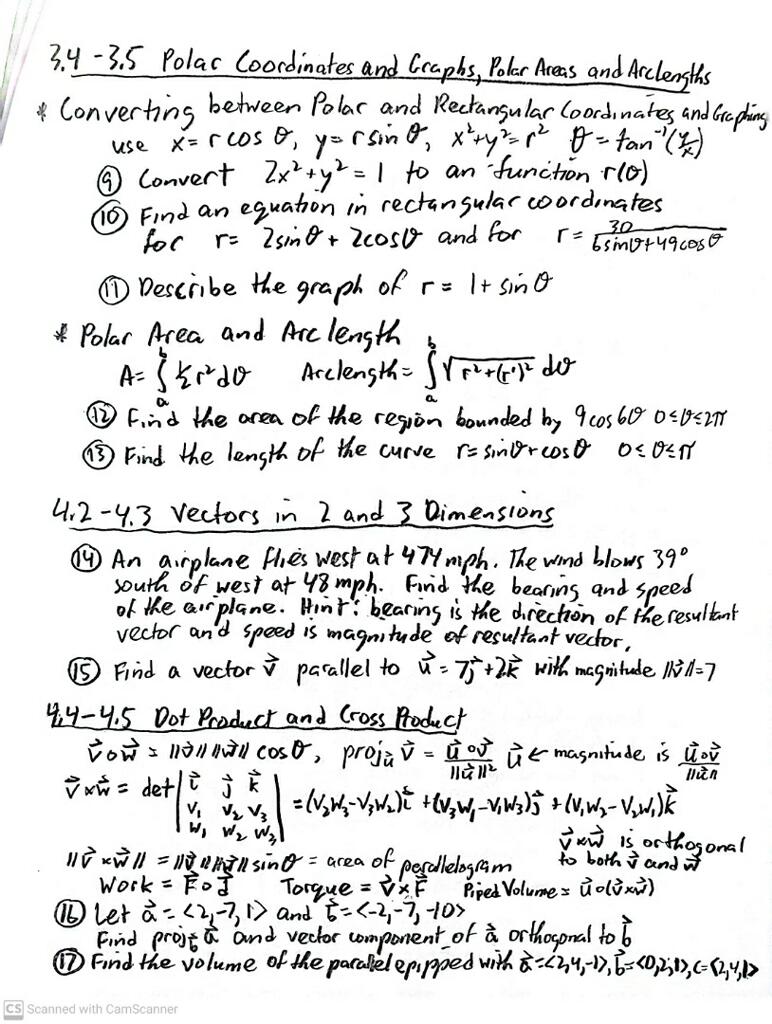 3.4-3.5 Polar Coordinates and Graphs, Polar Areas and Arclengths
* Converting between Polar and Rectangular Coordinates and Graphing
use x=rcosθ, y=rsinθ, x²+y²=r² θ=tan⁻¹(y/x)
⑨ Convert 2x²+y²=1 to an function r(θ)
⑩ Find an equation in rectangular coordinates
for r= 2sinθ+2cosθ and for r= 30/(6sinθ+49cosθ)
⑪ Describe the graph of r= 1+sinθ
* Polar Area and Arc length
A= ∫ₐᵇ ½r²dθ Arclength= ∫ₐᵇ √(r²+(r')²) dθ
⑫ Find the area of the region bounded by 9cos6θ 0≤θ≤2π
⑬ Find the length of the curve r=sinθ+cosθ 0≤θ≤π
4.2-4.3 Vectors in 2 and 3 Dimensions
⑭ An airplane flies west at 474 mph. The wind blows 39°
south of west at 48 mph. Find the bearing and speed
of the airplane. Hint: bearing is the direction of the resultant
vector and speed is magnitude of resultant vector,
⑮ Find a vector v⃗ parallel to u⃗=7j⃗+2k⃗ with magnitude ||v⃗||=7
4.4-4.5 Dot Product and Cross Product
v⃗∘w⃗ = ||v⃗|| ||w⃗|| cosθ, proj_u⃗ v⃗ = (u⃗∘v⃗)/||u⃗||² u⃗ ← magnitude is (u⃗∘v⃗)/||u⃗||
v⃗×w⃗ = det | i⃗ j⃗ k⃗
v₁ v₂ v₃
w₁ w₂ w₃ | =(v₂w₃-v₃w₂)i⃗+(v₃w₁-v₁w₃)j⃗+(v₁w₂-v₂w₁)k⃗
||v⃗×w⃗|| = ||v⃗|| ||w⃗|| sinθ = area of parallelogram
v⃗×w⃗ is orthogonal
to both v⃗ and w⃗
Work = F⃗∘d⃗ Torque = v⃗×F⃗ Piped Volume = u⃗∘(v⃗×w⃗)
⑯ Let a⃗=<2,-7,1> and b⃗=<-2,-7,-10>
Find proj_b⃗ a⃗ and vector component of a⃗ orthogonal to b⃗
⑰ Find the volume of the parallelepipped with a⃗=<2,4,-1>, b⃗=<0,2,1>, c=<2,4,1>
CS Scanned with CamScanner